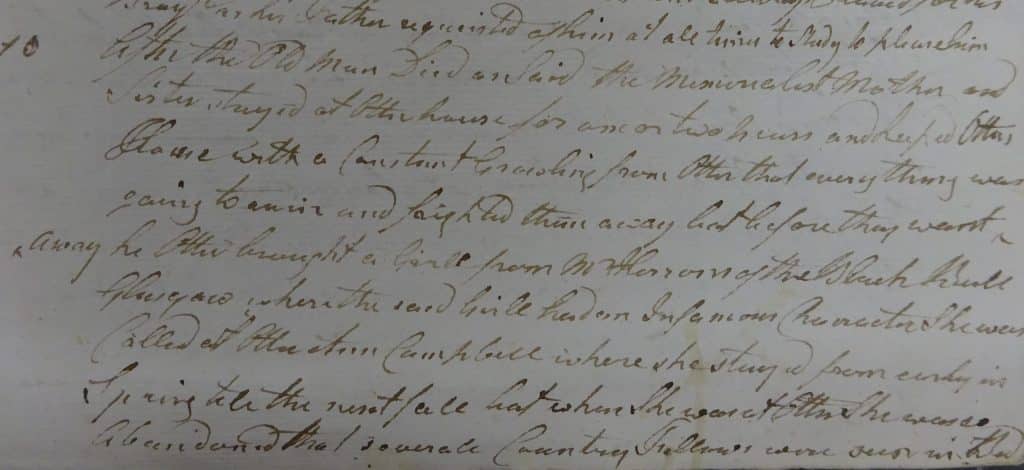 his Father requested of him at all times to Study to please him
10 After the Old Man Died as Said the Memorialist Mother and
Sister stayed at Otter house for one or two hours and keeped Otters
House with a Constant Growling from Otter that every thing was
going to ruin and frighted them away but before they went
away he Otter brought a Girle from Mr Herrons of the Black Bull
Glasgow where the said Girle had an Infamous Character She was
Called at Otter Campbell where she stayed from early in
Spring till the next fall but when She was at Otter She was so
Abandoned that severall Country Fellows were seen in Bed